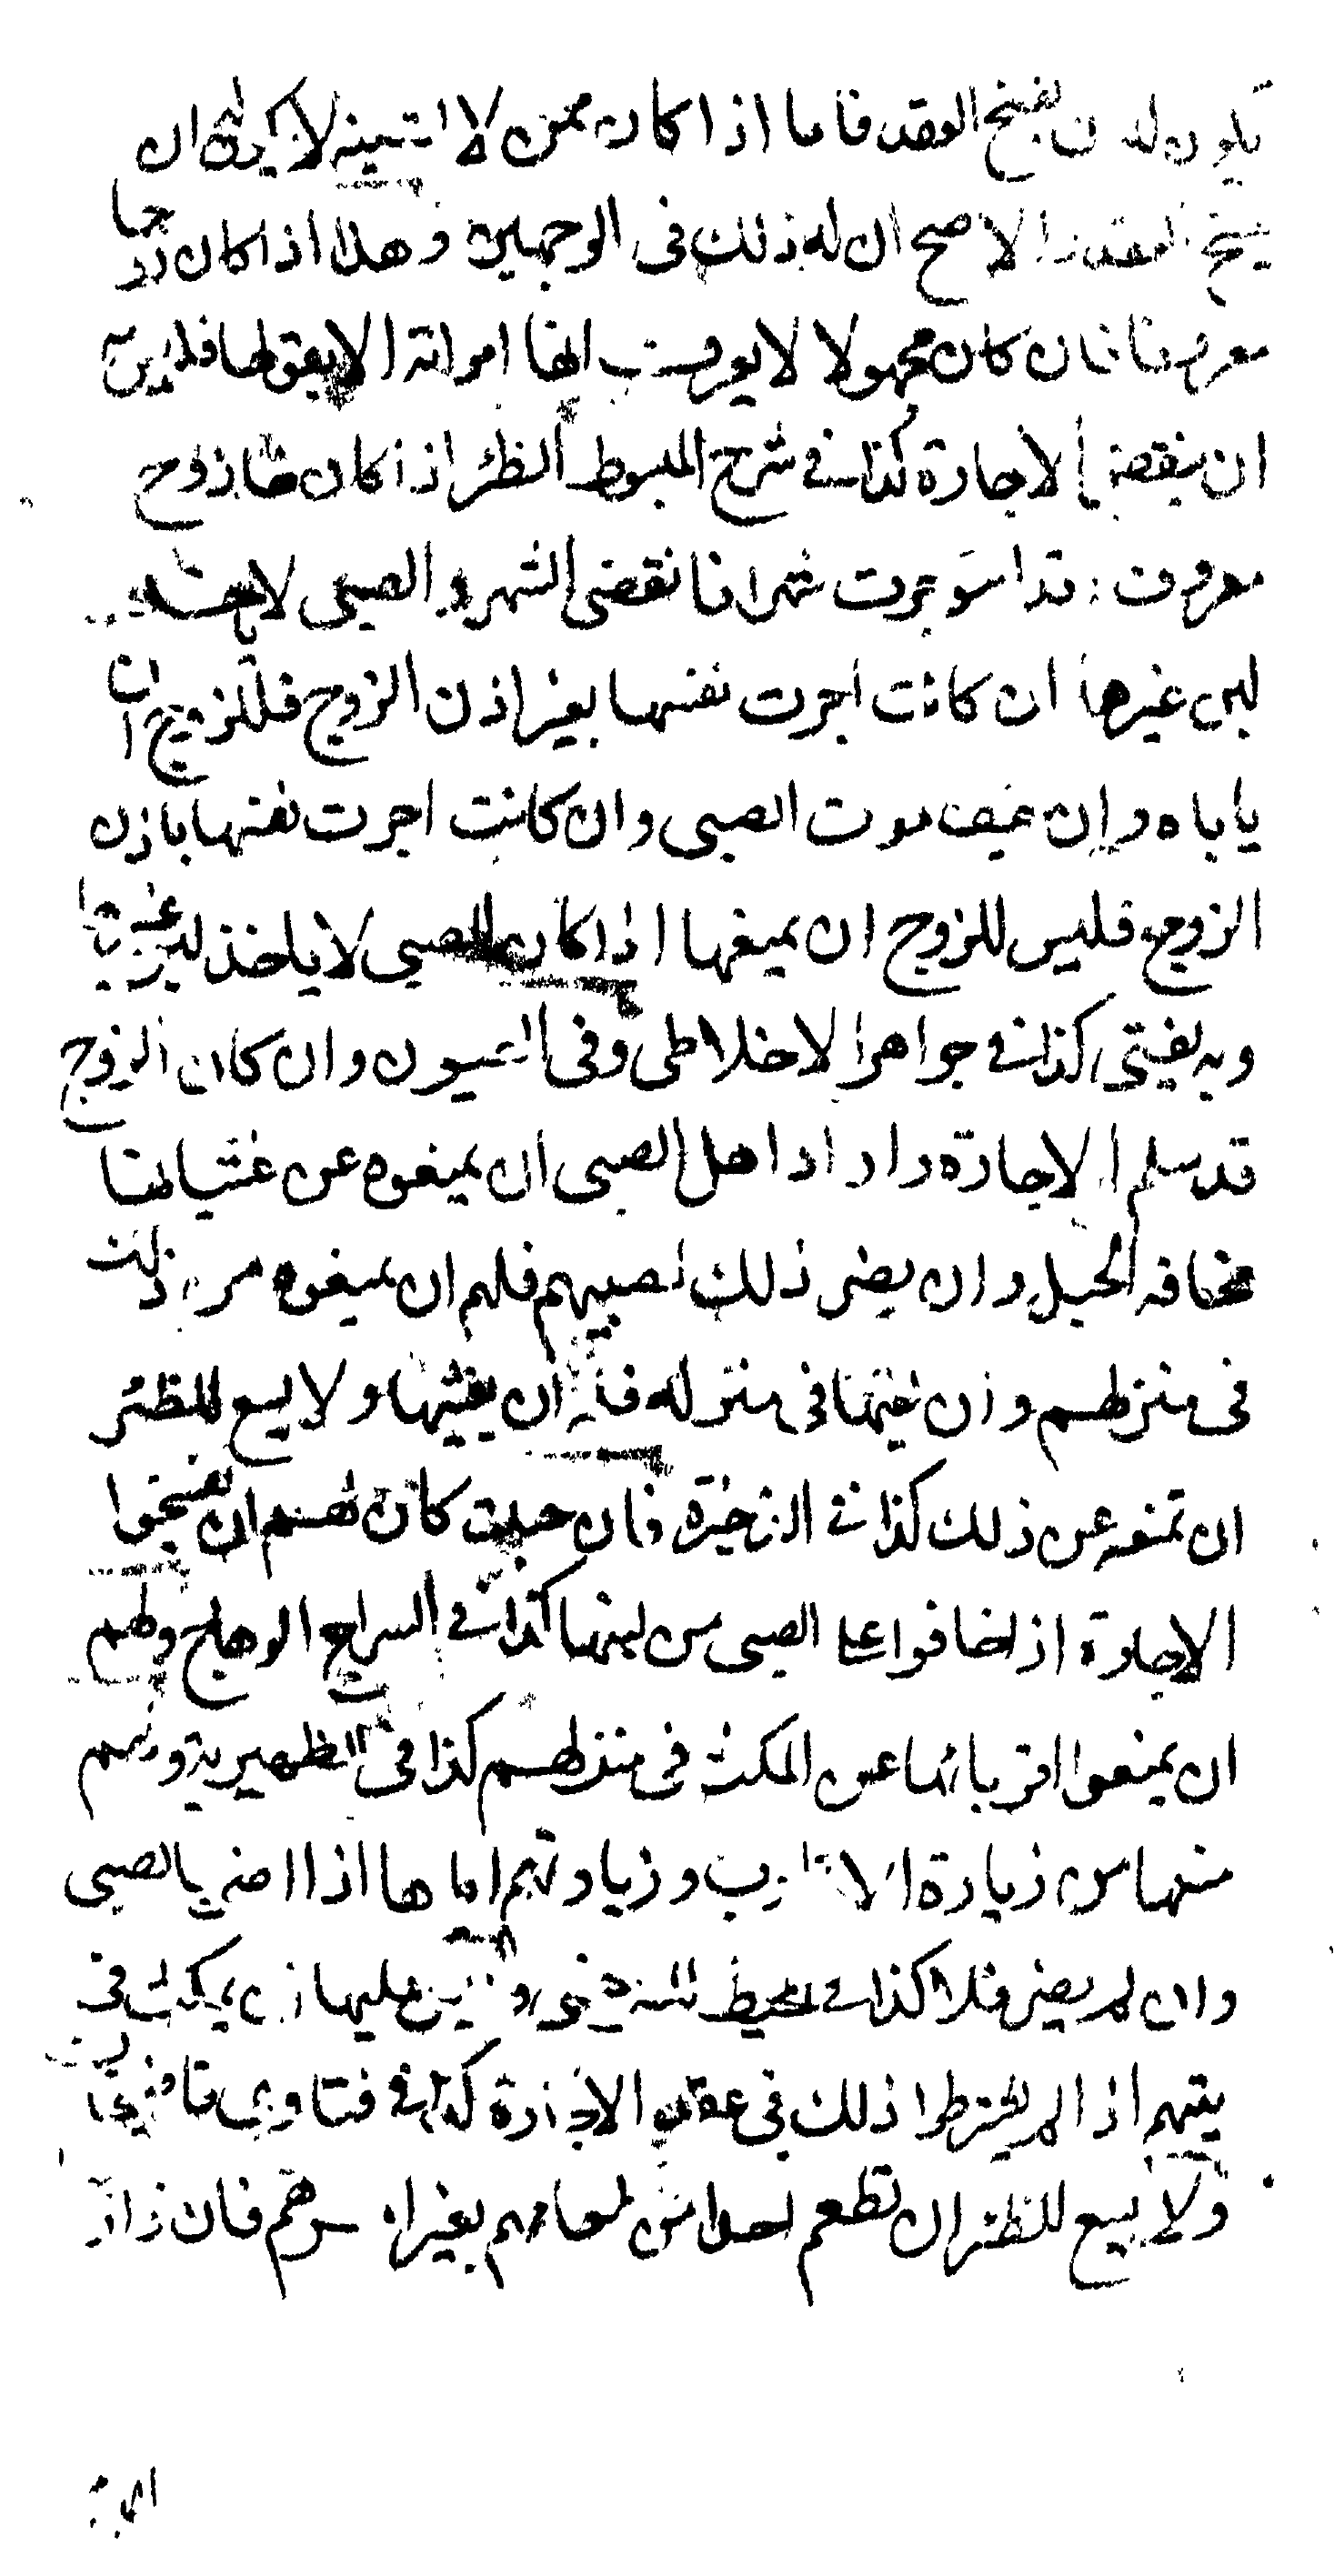 يكون له ان يفسخ العقد فاما اذا كان ممن لا تشينه لا يكون له ان
يفسخ العقد والاصح ان له ذلك فى الوجهين وهذا اذا كان زوجا
معروفا فان كان مجهولا لا يعرف انها امراته الا بقولها فليس له
ان ينقض الاجارة كذا فى شرح المبسوط الظئر اذا كان لها زوج
معروف قد استوجرت شهرا فانقضى الشهر والصبى لا ياخذ
لبن غيرها ان كانت اجرت نفسها بغير اذن الزوج فللزوج ان
يا باه وان خيف موت الصبى وان كانت اجرت نفسها باذن
الزوج فليس للزوج ان يمنعها اذا كان الصبى لا ياخذ لبن غيرها
وبه يفتى كذا فى جواهر الاخلاطى وفى العيون وان كان الزوج
قد سلم الاجارة واراد اهل الصبى ان يمنعوه عن غشيانها
مخافة الحبل وان يضر ذلك لصبيهم فلهم ان يمنعوه من ذلك
فى منزلهم وان لقيها فى منزله فله ان يغشيها ولا يسع للظئر
ان تمنعه عن ذلك كذا فى الذخيرة فان حبلت كان لهم ان يفسخوا
الاجارة اذا خافوا على الصبى من لبنها كذا فى السراج الوهاج ولهم
ان يمنعوا اقربائها عن المكث فى منزلهم كذا فى الظهيرية ولهم
منعها من زيارة الاقارب وزيارتهم اياها اذا اضر بالصبى
وان لم يضر فلا كذا فى محيط السرخسى وليس عليها ان يمكث فى
بيتهم اذا لم يشترطوا ذلك فى عقد الاجارة كذا فى فتاوى قاضيخان
ولا يسع للظئر ان تطعم احدا من طعامهم بغير امرهم فان زار